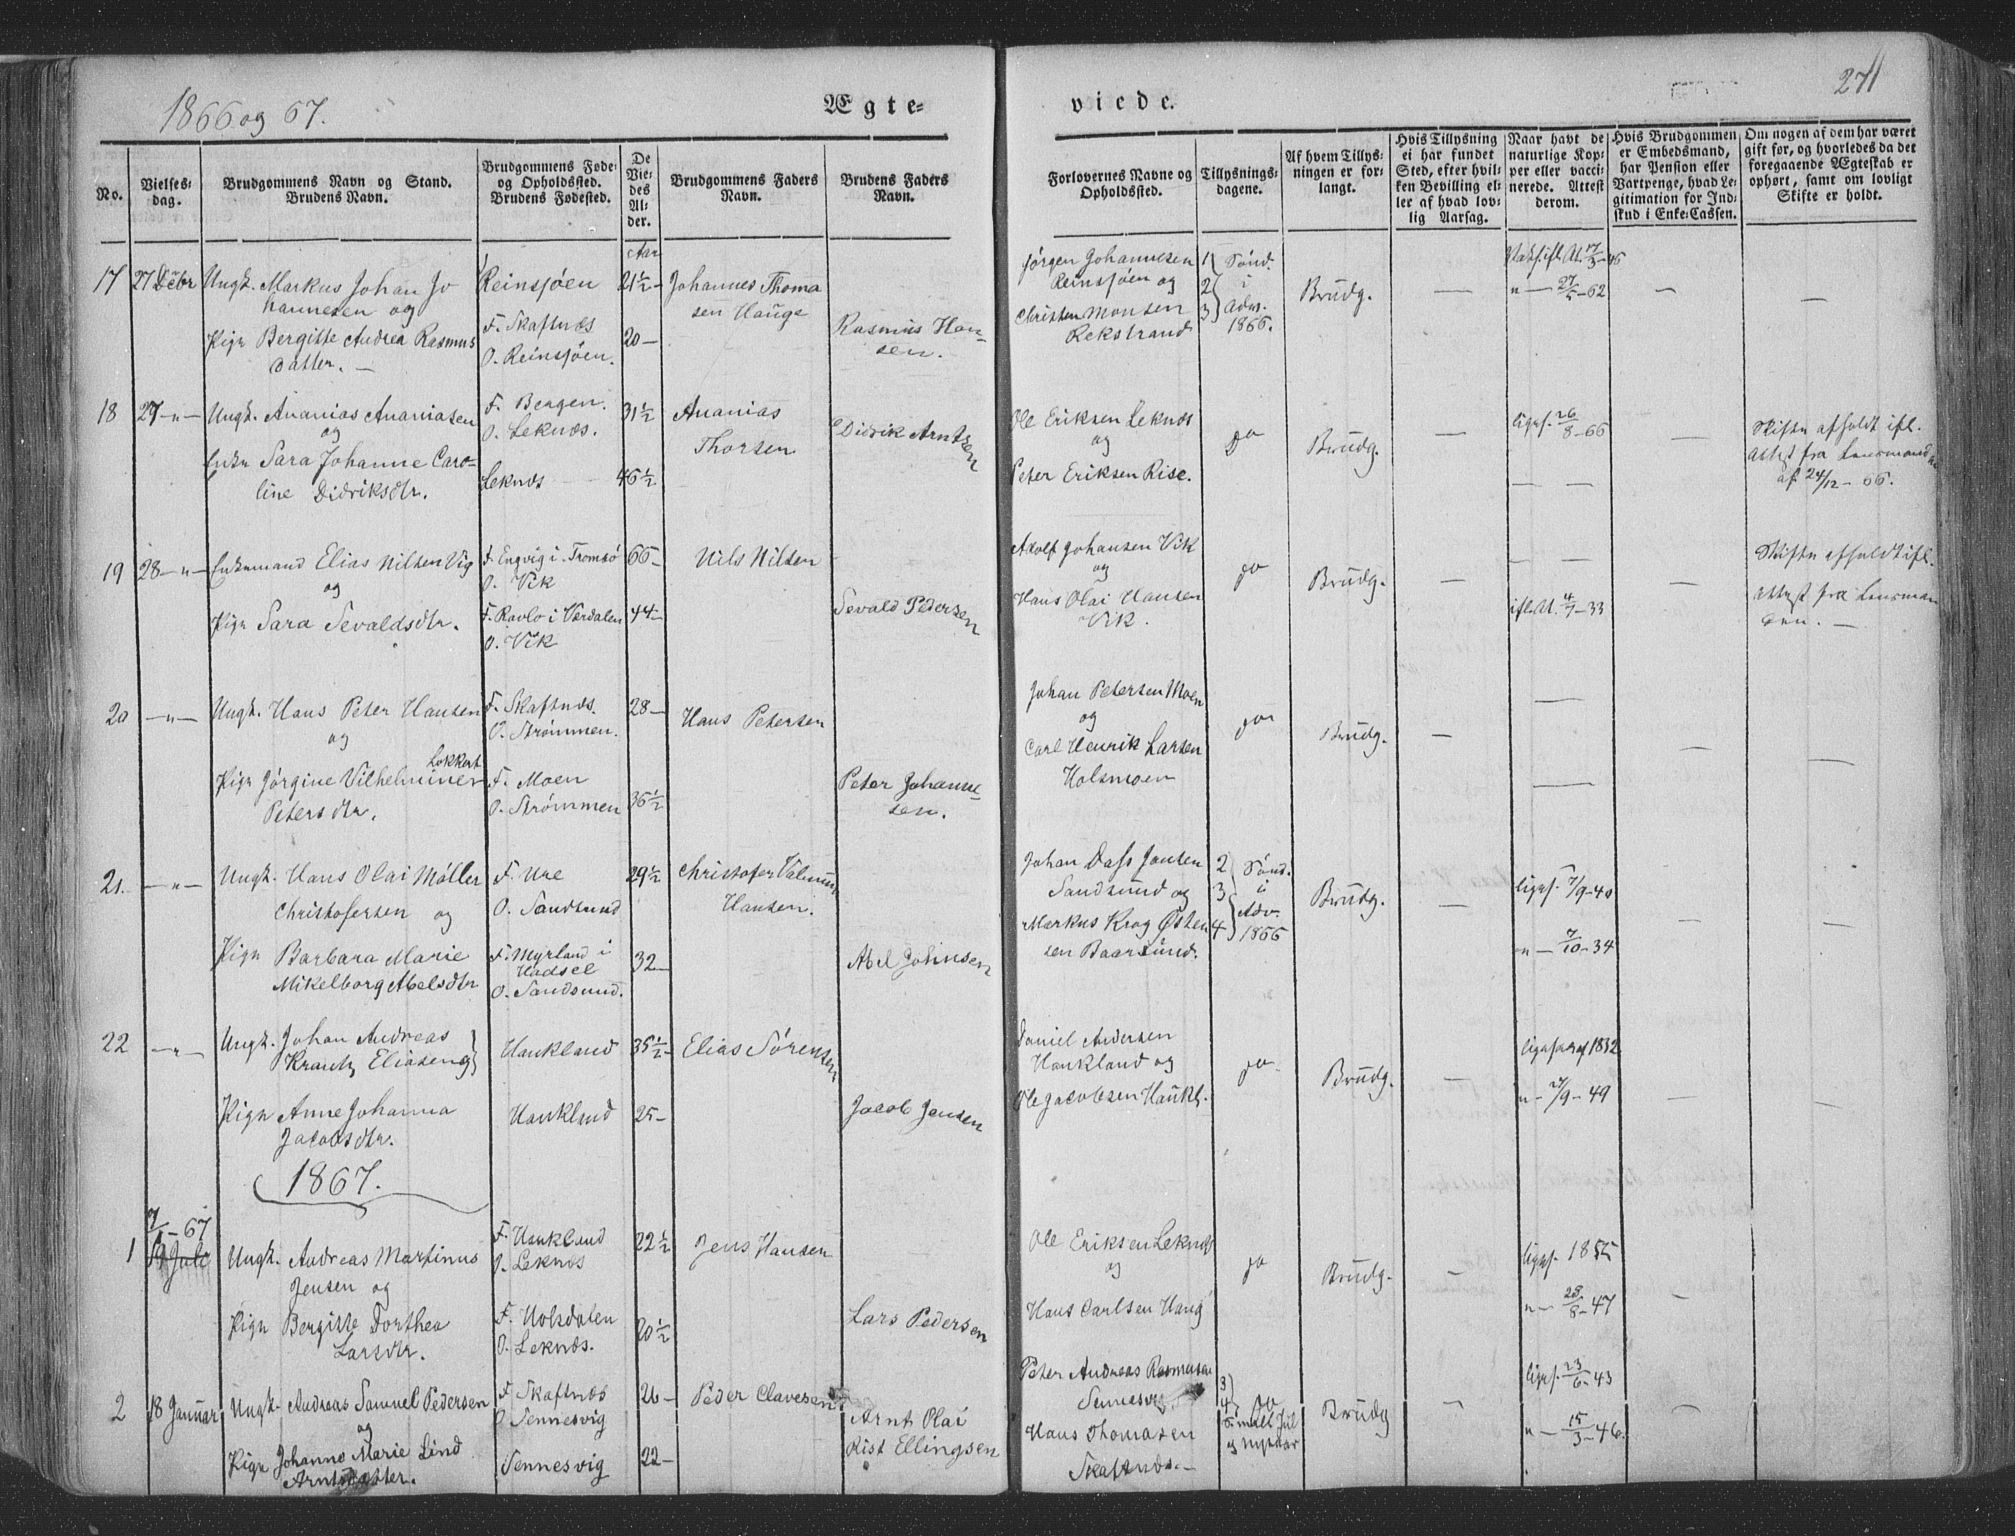 1866 og 67.
Ægte-
viede.
271
No.
Vielses-
dag.
Brudgommens Navn og Stand.
Brudens Navn.
Brudgommens Føde-
og Opholdssted.
Brudens Fødested.
De
Vie-
des
Al-
der.
Brudgommens Faders
Navn.
Brudens Faders
Navn.
Forlovernes Navne og
Opholdssted.
Tillysnings-
dagene.
Af hvem Tillys-
ningen er for-
langt.
Hvis Tillysning
ei har fundet
Sted, efter hvil-
ken Bevilling el-
ler af hvad lov-
lig Aarsag.
Naar havt de
naturlige Kop-
per eller vacci-
nerede. Attest
derom.
Hvis Brudgommen
er Embedsmand,
har Pension eller
Vartpenge, hvad Le-
gitimation for Ind-
skud i Enke-Cassen.
Om nogen af dem har været
gift før, og hvorledes da det
foregaaende Ægteskab er
ophørt, samt om lovligt
Skifte er holdt.
Aar
17 27 Debr Ungk. Markus Johan Jo
hannesen og
Reinsjøen 21½ Johannes Thoma
sen Hauge
Pige Bergitte Andrea Rasmus
datter. —
F. Skaftnæs
O. Reinsjøen.
20 —
Rasmus Han-
sen.
Jørgen Johannesen
Reinsjøen og
Christen Monsen
Rekstrand
1 2 3 Sønd.
i
Adv.
1866.
Brudg.
— 27/5 — 62
18 27 —"— Ungk. Ananias Ananiasen
og
F. Bergen.
O. Leknæs.
31½ Ananias
Thorsen
Enke Sara Johanne Caro-
line Didriksdtr.
Leknæs 46½
Didrik Arntsen
Ole Eriksen Leknæs
og
Peter Eriksen Rise.
do Brudg.
ligel. 26/8 — 66
Skifte afholdt ifl.
Attest fra Lensmand
af 24/12 — 66.
19 28 —"— Enkemand Elias Nilsen Vig
og
F. Engvig i Tromsø
O. Vik
66 — Nils Nilsen
Pige Sara Sevaldsdtr.
F. Ravlo i Værdalen
O. Vik
44 —
Sevald Pedersen
Adolf Johansen Vik
og
Hans Olai Hansen
Vik.
do Brudg.
ifl. At. 4/7 — 33
Skifte afholdt ifl.
Attest fra Lensman
den. —
20 —"— Ungk. Hans Peter Hansen
og
F. Skaftnæs.
O. Strømmen.
28 — Hans Petersen
Lokkert
Pige Jørgine Vilhelminer
Petersdtr.
F. Moen
O. Strømmen
36½
Peter Johanne-
sen.
Johan Petersen Moen
og
Carl Henrik Larsen
Holsmoen
do Brudg.
21. —"— Ungk. Hans Olai Møller
Christofersen og
F. Ure
O. Sandsund
29½ Christofer
Hansen.
Pige Barbara Marie
Mikelborg Abelsdtr
F. Myrland i
Hadsel
O. Sandsund.
32 —
Abel Johnsen
Johan Dass Jansen
Sandsund og
Markus Krog Østen
sen Baarsund.
2 3 4 Sønd.
i
Adv.
1866
Brudg.
ligel. 7/9 — 40
" — 7/10 — 34
22 —"— Ungk. Johan Andreas
Krantz Eliasen og
Haukland 35½ Elias Sørensen
Pige Anne Johanna
Jacobsdtr.
Haukland 25 —
Jacob Jensen
Daniel Andersen
Haukland og
Ole Jacobsen Haukl.
do. Brudg.
1832
" — 7/9 — 49
1867.
1 7/1 — 67
Ungk. Andreas Martinus
Jensen og
F. Haukland
O. Leknæs
22½ Jens Hansen
Pige Bergitte Dorthea
Larsdtr.
F. Holsdalen
O. Leknæs.
20½
Lars Pedersen
Ole Eriksen Leknæs
og
Hans Carlsen Haug
do Brudg.
ligel. 1855
" — 28/8 — 47
2 18 Januar Ungk. Andreas Samuel Pedersen
og
F. Skaftnæs
O. Sennesvig
26 — Peder Clavesen
Pige Johanne Marie Lind
Arntsdatter.
Sennesvig 22 —
Arnt Olai
Kist Ellingsen
Peter Andreas Rasmussen
Sennesvig
Hans Thomasen
Skaftnæs. —
Brudg
ligel. 23/6 — 43
" — 15/3 — 46.